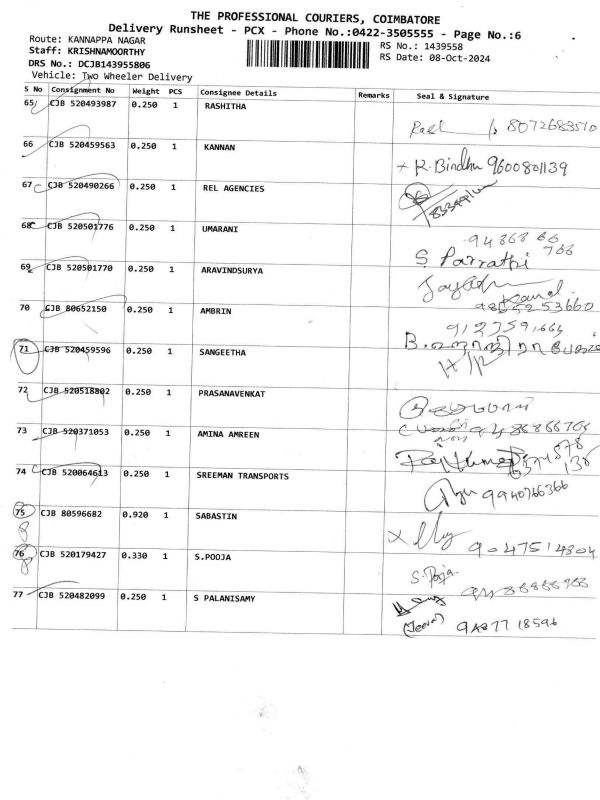 THE PROFESSIONAL COURIERS, COIMBATORE
Delivery Runsheet - PCX - Phone No.:0422-3505555 - Page No.:6
Route: KANNAPPA NAGAR
RS No.: 1439558
Staff: KRISHNAMOORTHY
RS Date: 08-Oct-2024
DRS No.: DCJB143955806
Vehicle: Two Wheeler Delivery
S No Consignment No Weight PCS Consignee Details Remarks Seal & Signature
65 CJB 520493987 0.250 1 RASHITHA
8072683510
66 CJB 520459563 0.250 1 KANNAN
K. Bindhu 9600801139
67 CJB 520490266 0.250 1 REL AGENCIES
68 CJB 520501776 0.250 1 UMARANI
S. Parrathi
69 CJB 520501770 0.250 1 ARAVINDSURYA
70 CJB 80652150 0.250 1 AMBRIN
71 CJB 520459596 0.250 1 SANGEETHA
H/R
72 CJB 520518802 0.250 1 PRASANAVENKAT
73 CJB 520371053 0.250 1 AMINA AMREEN
74 CJB 520064613 0.250 1 SREEMAN TRANSPORTS
9940766366
75 CJB 80596682 0.920 1 SABASTIN
9047514304
76 CJB 520179427 0.330 1 S.POOJA
S. Pooja
77 CJB 520482099 0.250 1 S PALANISAMY